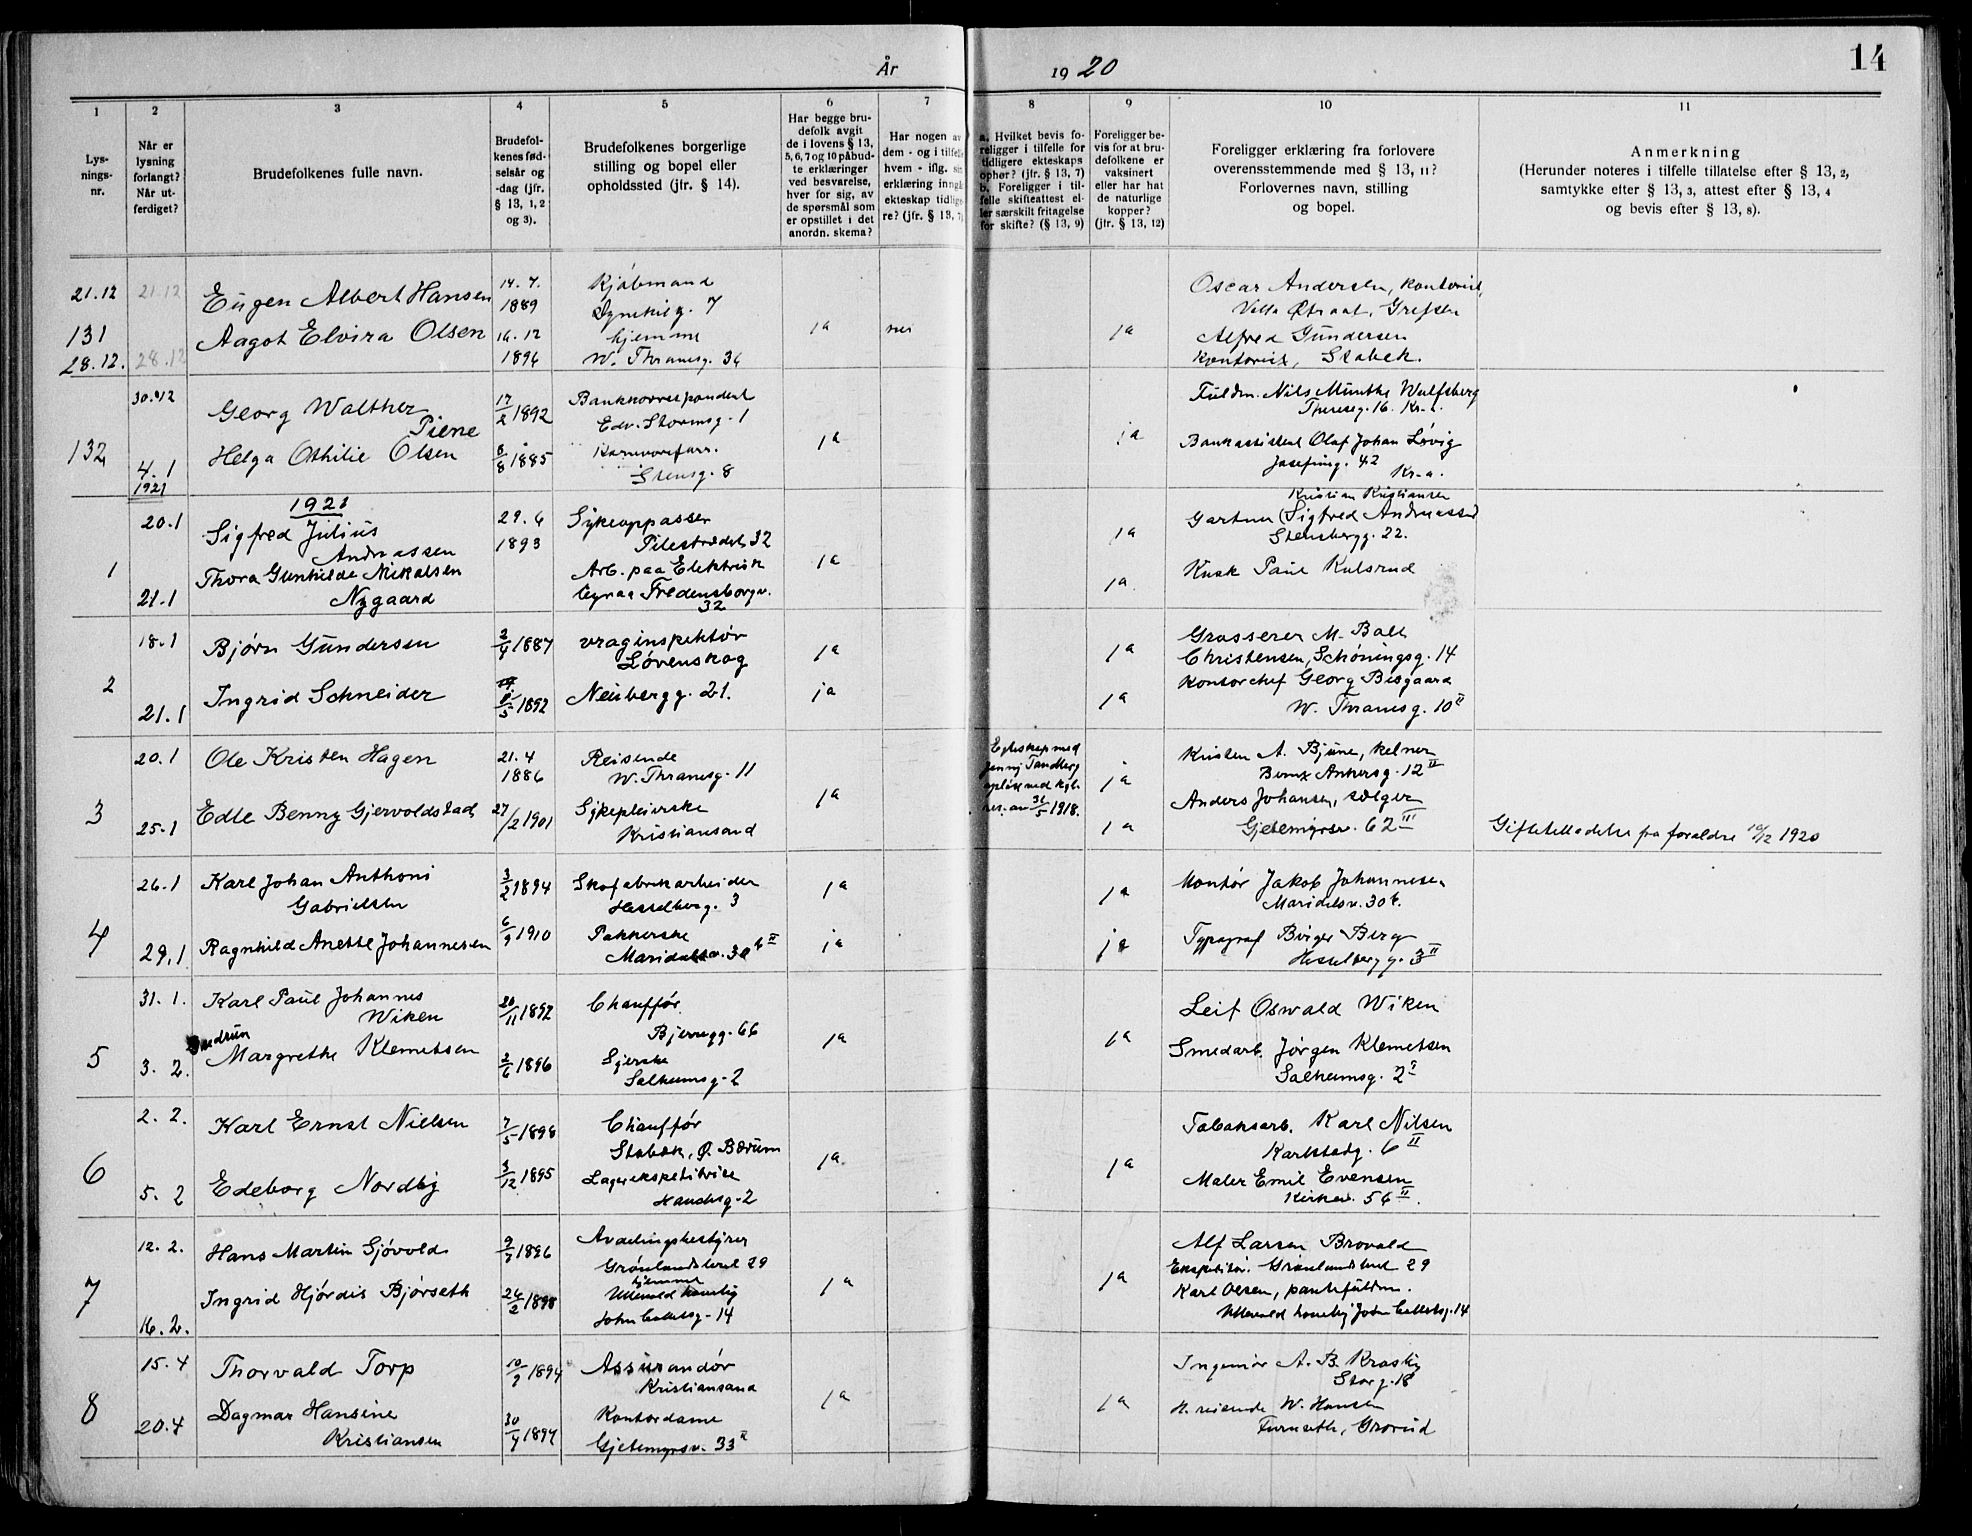 År 1920
14
1
2
3
4
5
6
7
8
9
10
11
Lys-
nings-
nr.
Når er
lysning
forlangt?
Når ut-
ferdiget?
Brudefolkenes fulle navn.
Brudefol-
kenes fød-
selsår og
-dag (jfr.
§ 13, 1, 2
og 3).
Brudefolkenes borgerlige
stilling og bopel eller
opholdssted (jfr. § 14).
Har begge bru-
defolk avgit
de i lovens § 13,
5, 6, 7 og 10 påbud-
te erklæringer
ved besvarelse,
hver for sig, av
de spørsmål som
er opstillet i det
anordn. skema?
Har nogen av
dem - og i tilfelle
hvem - iflg. sin
erklæring inngå
ekteskap tidlige-
re? (jfr. § 13, 7)
a. Hvilket bevis fo-
religger i tilfelle for
tidligere ekteskaps
ophør? (jfr. § 13, 7)
b. Foreligger i til-
felle skifteattest el-
ler særskilt fritagelse
for skifte? (§ 13, 9)
Foreligger be-
vis for at bru-
defolkene er
vaksinert
eller har hat
de naturlige
kopper?
(jfr. § 13, 12)
Foreligger erklæring fra forlovere
overensstemmende med § 13, 11?
Forlovernes navn, stilling
og bopel.
Anmerkning
(Herunder noteres i tilfelle tillatelse efter § 13, 2,
samtykke efter § 13, 3, attest efter § 13, 4
og bevis efter § 13, 8).
21.12
131
28.12.
21.12
28.12
Eugen Albert Hansen
Aagot Elvira Olsen
14. 7.
1889
16. 12
1896
Kjøbmand
7
hjemme
W. Thranesg. 36
ja
nei
ja
Oscar Andersen, kontorist,
Villa Grefsen
Alfred Gundersen
Kontorist, Stabek.
132
30.12
4. 1
1921
Georg Walther
Piene
Helga Othilie Olsen
17/2 1892
8/8 1885
Bankkorrespondent
Edv. Stormsg. 1
Stensg. 8
ja
ja
Fuldm. Nils Munthe Wulfsberg
Thereseg. 16. Kr-a.
Bankassistent Olaf Johan Løvig
Josefinesg. 42
Kr-a.
1921
1
20.1
21.1
Sigfred Julius
Andreassen
Thora Gunhilde Nikolsen
Nygaard
29. 6
1893
Sykeopasser
Pilestrædet 32
Arb. paa Elektrisk
Fredensborgv.
32
ja
ja
ja
Kristian Kristiansen
Gartner (Sigfred Andreassen
Stensbergg. 22.
Kusk Paul Kulsrud
2
18.1
21.1
Bjørn Gundersen
Ingrid Schneider
2/4 1887
5 1892
vraginspektør
Løvenskog
Neubergg. 21.
ja
ja
ja
ja
Grosserer M. Ball
Christensen, Schøningsg. 14
Kontorchef Georg Bisgaard
W. Thranesg. 10 II
3
20.1
25.1
Ole Kristen Hagen
Edle Benny Gjervoldstad
21. 4
1886
27/2 1901
Reisende
W. Thranesg. 11
Sykepleierske
Kristiansand
ja
Egteskap med
Jenny Tandberg
opløst ved kgl.
res. av 31/5 1918.
ja
ja
Kristen A. Bjune, kelner
Bernt Ankersg. 12 II
Anders Johansen, sælger
Gjetemyrsv. 62 III
Giftetilladelse fra forældre 10/12 1920
4
26.1
29.1
Karl Johan Anthoni
Gabrielsen
Ragnhild Anette Johannesen
3/2 1894
6/9 1910
Skofabrikarbeider
Hesselbergg. 3
Pakkerske
Maridalsv. 30 b II
ja
ja
ja
ja
Montør Jakob Johannesen
Maridalsv. 30 b.
Typograf Birger Berg
Hesselbergg. 3 II
5
31. 1.
3. 2.
Karl Paul Johannes
Wiken
Gudrun
Margrethe Klemetsen
20/11 1892
2/6 1896
Chauffør
Bjerregg. 66
Syerske
Sælheimsg. 2
ja
ja
Leif Oswald Wiken
Smedarb. Jørgen Klemetsen
Sælheimsg. 2 I
6
2. 2.
5. 2
Karl Ernst Nielsen
Edeborg Nordby
7/5 1898
3/12 1895
Chauffør
Stabæk, Ø. Bærum
Lagerekspeditrise
2
ja
ja
Tobaksarb. Karl Nilsen
Karlstadg. 6 II
Maler Emil Evensen
Kirkev. 56 II.
7
12. 2.
16. 2.
Hans Martin Sjøvold
Ingrid Hjørdis Bjørseth
9/7 1896
26/2 1898
Avdelingsbestyrer
Grønlandsleret 29
hjemme
Ullevold haveby
John Colletsg. 14
ja
ja
Alf Larsen Brovold
Ekspeditør. Grønlandsleret 29
Karl Olsen, pantefuldm.
Ullevold haveby John Colletsg. 14
8
15. 4
20. 4
Thorvald Torp
Dagmar Hansine
Kristiansen
10/9 1894
30/4 1897
Assurandør
Kristiansand
Kontordame
Gjetemyrsv. 33 II
ja
ja
Ingeniør A. B. Krosby
Storg. 18
H. reisende W. Hansen
Furuseth, Grorud